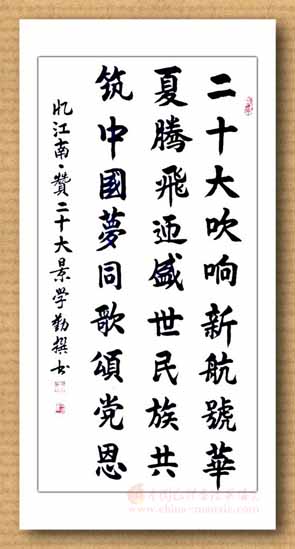 二十大吹响新航號華
夏騰飛迊盛世民族共
筑中國夢同歌頌党恩
忆江南·贊二十大景学勤撰书
www.china-mzxsie.com